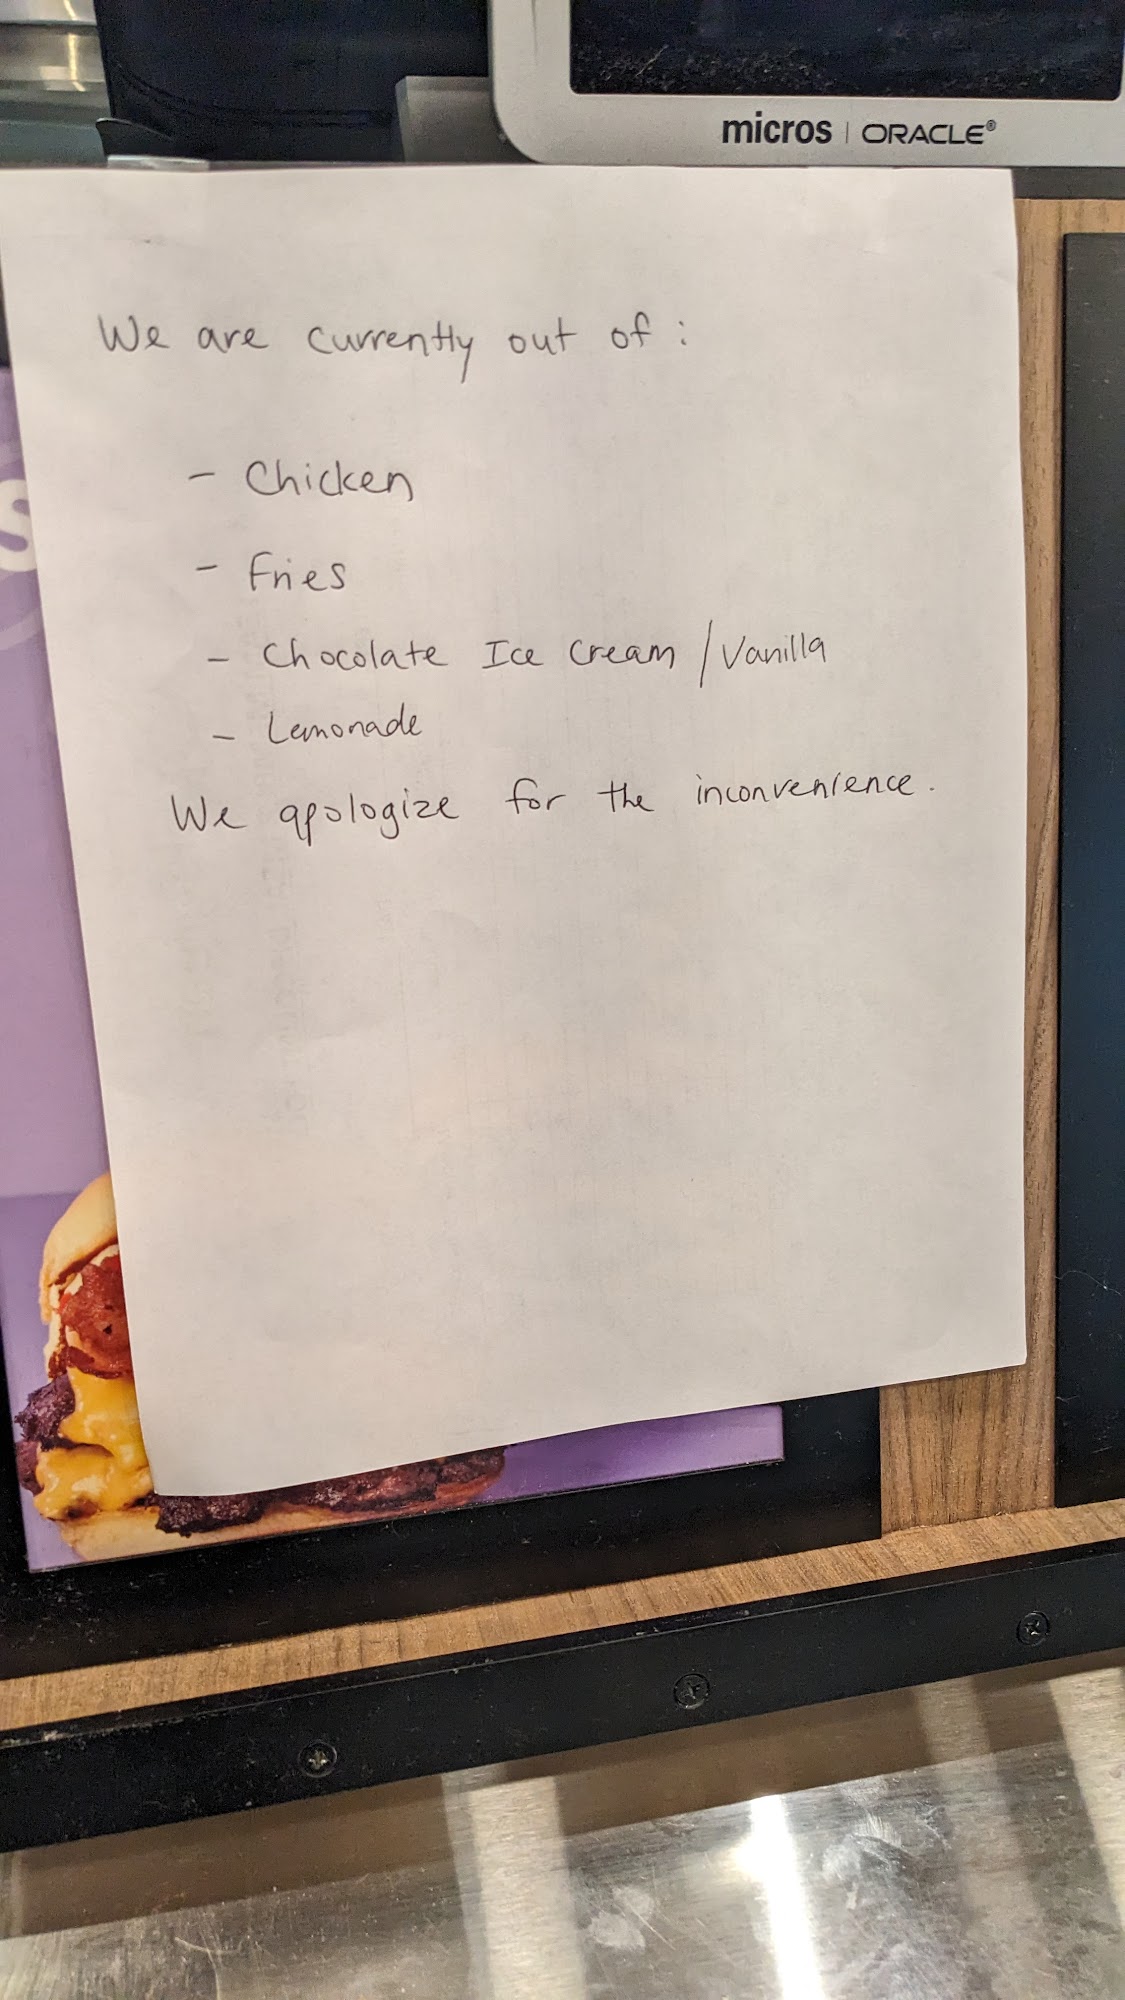 micros | ORACLE®
We are currently out of :
- Chicken
- Fries
- Chocolate Ice Cream / Vanilla
- Lemonade
We apologize for the inconvenience.